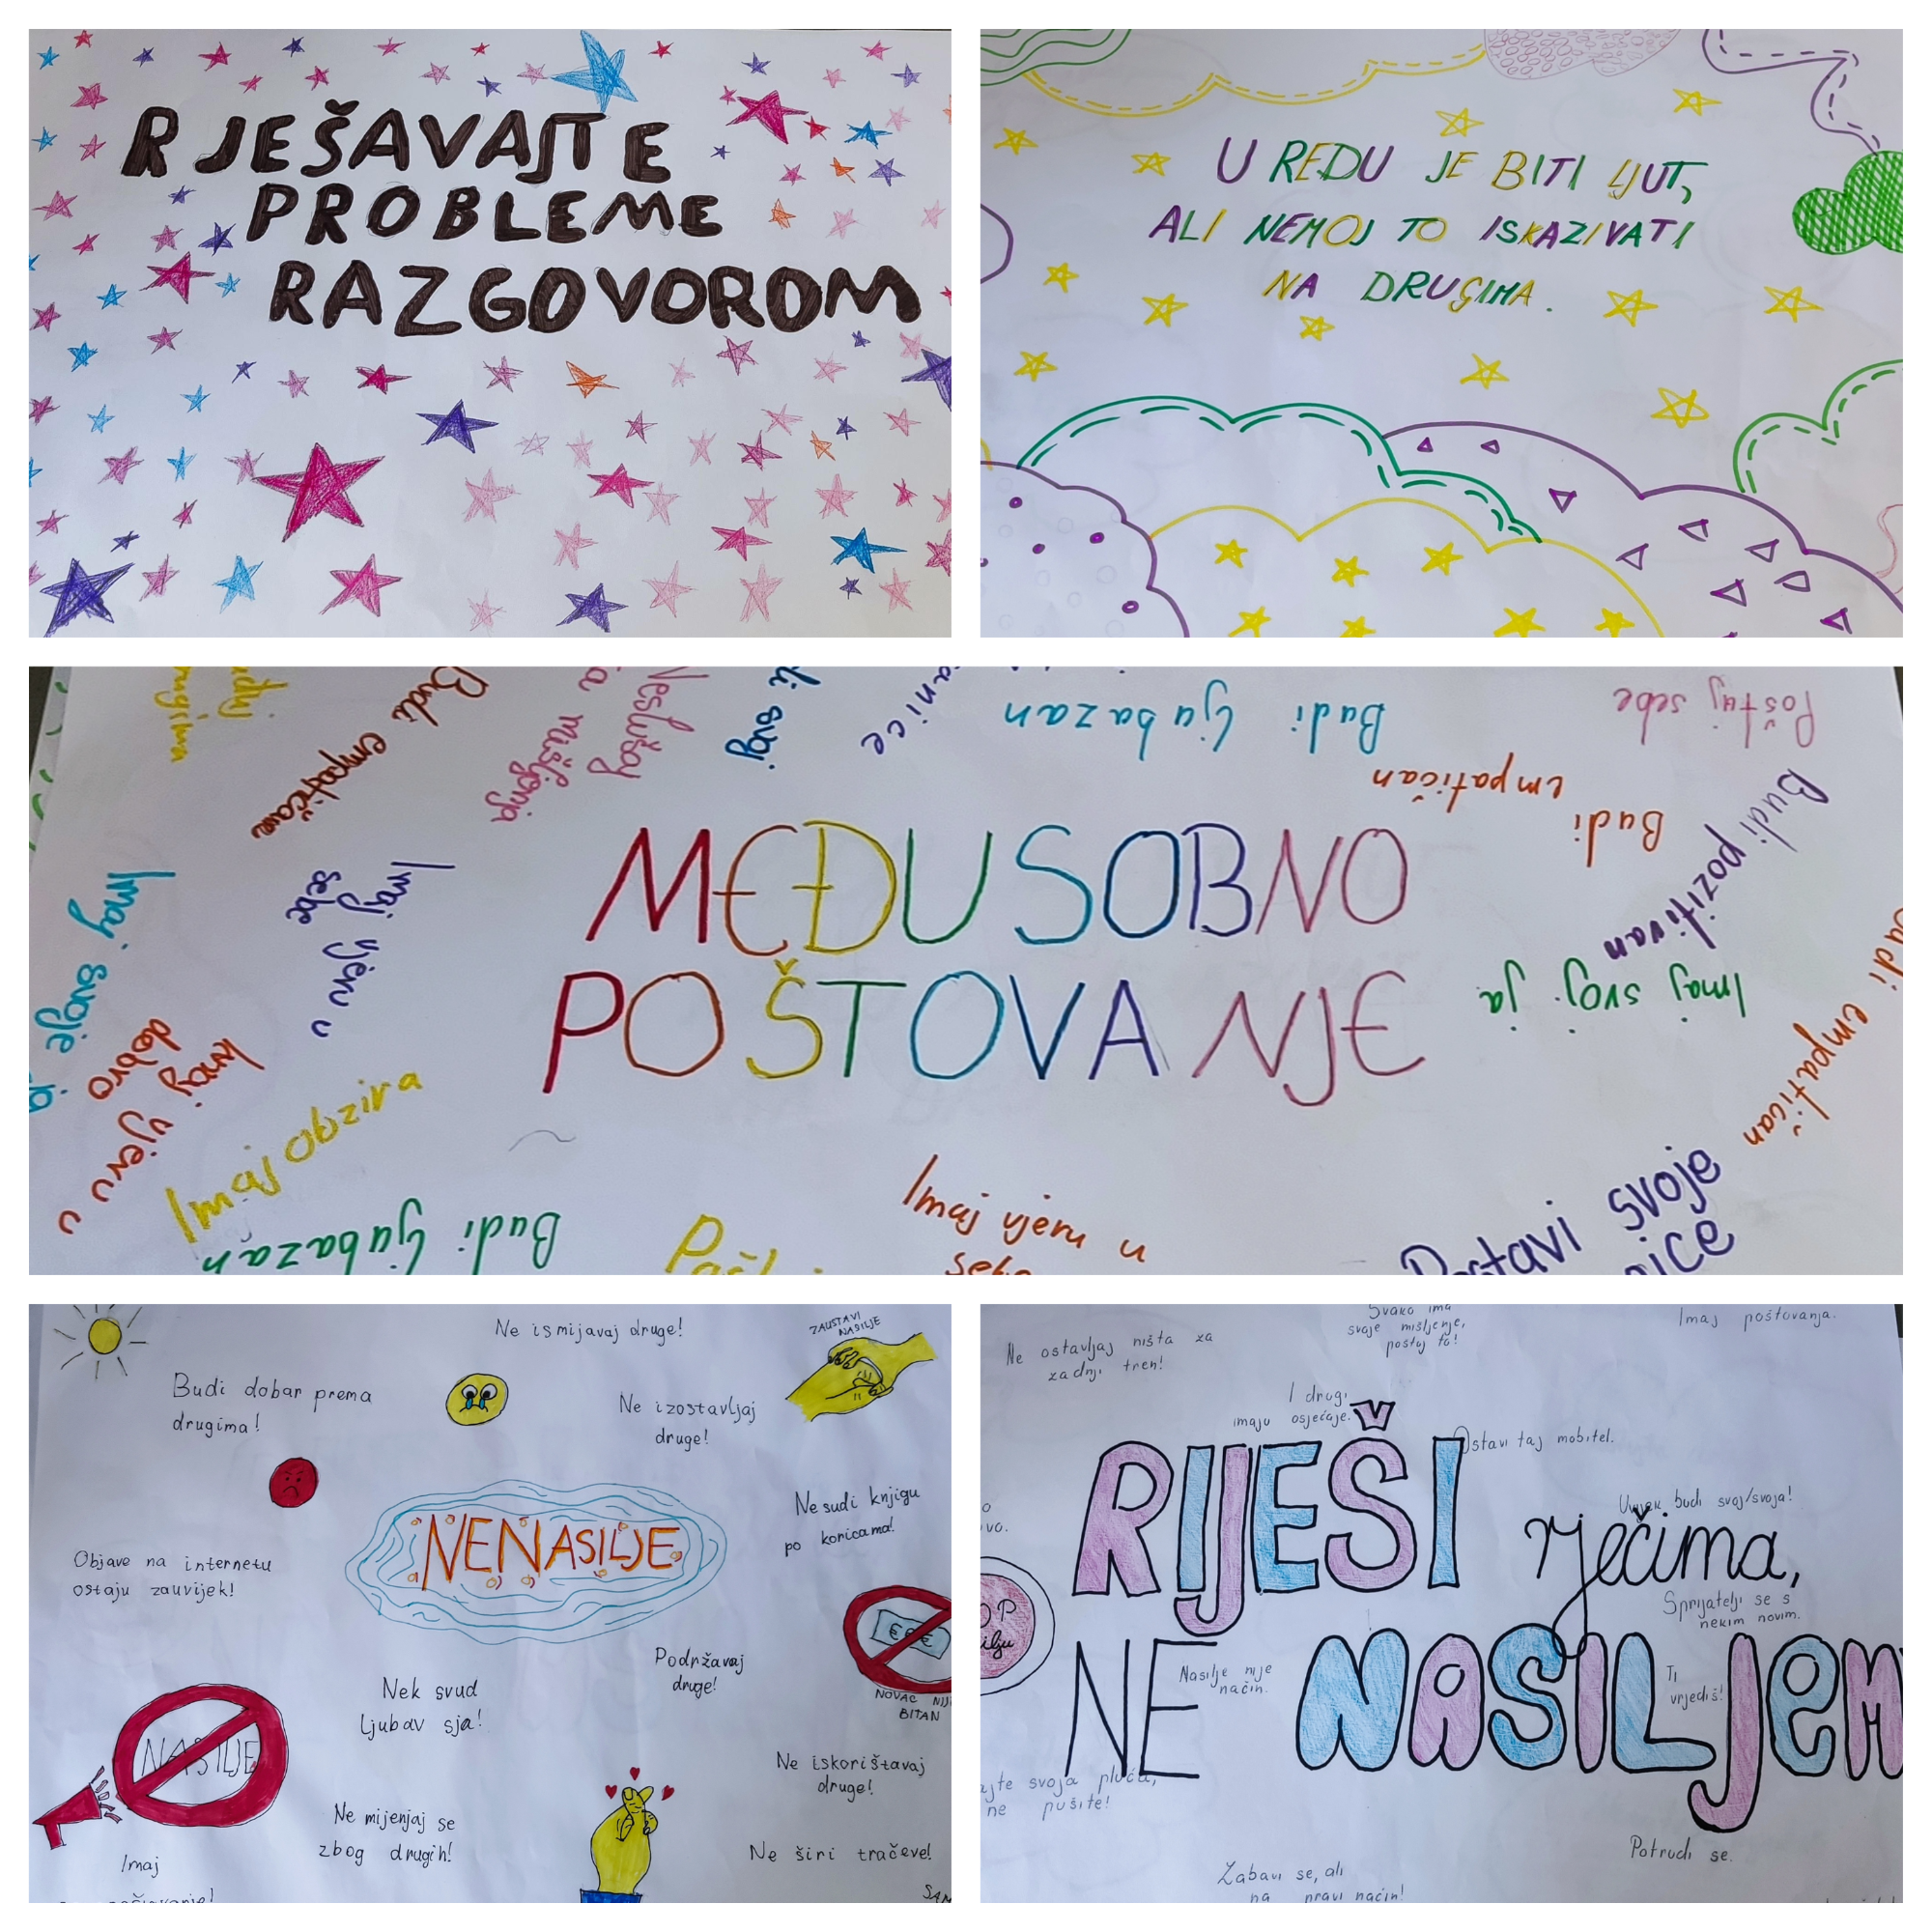 RJEŠAVAJTE
PROBLEME
RAZGOVOROM
U REDU JE BITI LJUT,
ALI NEMOJ TO ISKAZIVATI
NA DRUGIMA.
Budi empatičan
mišljenja
svoj
Budi ljubazan
Poštuj sebe
Budi
empatičan
Budi pozitivan
Imaj svoj ja
empatičan
Imaj svoje
Imaj vjeru u
sebe
MEĐUSOBNO
POŠTOVANJE
Imaj vjeru u
dobro
Imaj obzira
Budi ljubazan
Imaj vjeru u
Postavi svoje
Ne ismijavaj druge!
ZAUSTAVI
NASILJE
Budi dobar prema
drugima!
Ne izostavljaj
druge!
Ne sudi knjigu
po koricama!
NENASILJE
Objave na internetu
ostaju zauvijek!
Podržavaj
druge!
NOVAC
BITAN
Nek svud
ljubav sja!
NASILJE
Ne iskorištavaj
druge!
Ne mijenjaj se
zbog drugih!
Ne širi tračeve!
Imaj
Svako ima
svoje misljenje,
poštuj to!
Imaj poštovanja.
Ne ostavljaj ništa za
zadnji tren!
I drugi
imaju osjećaje.
Ostavi taj mobitel.
RIJEŠI
Uvijek budi svoj/svoja!
rječima,
Sprijatelji se s
nekim novim.
NE
Nasilje nije
način.
NASILJEM
Ti
vrjediš!
svoja pluća,
ne pušite!
Potrudi se.
Zabavi se, ali
na pravi način!